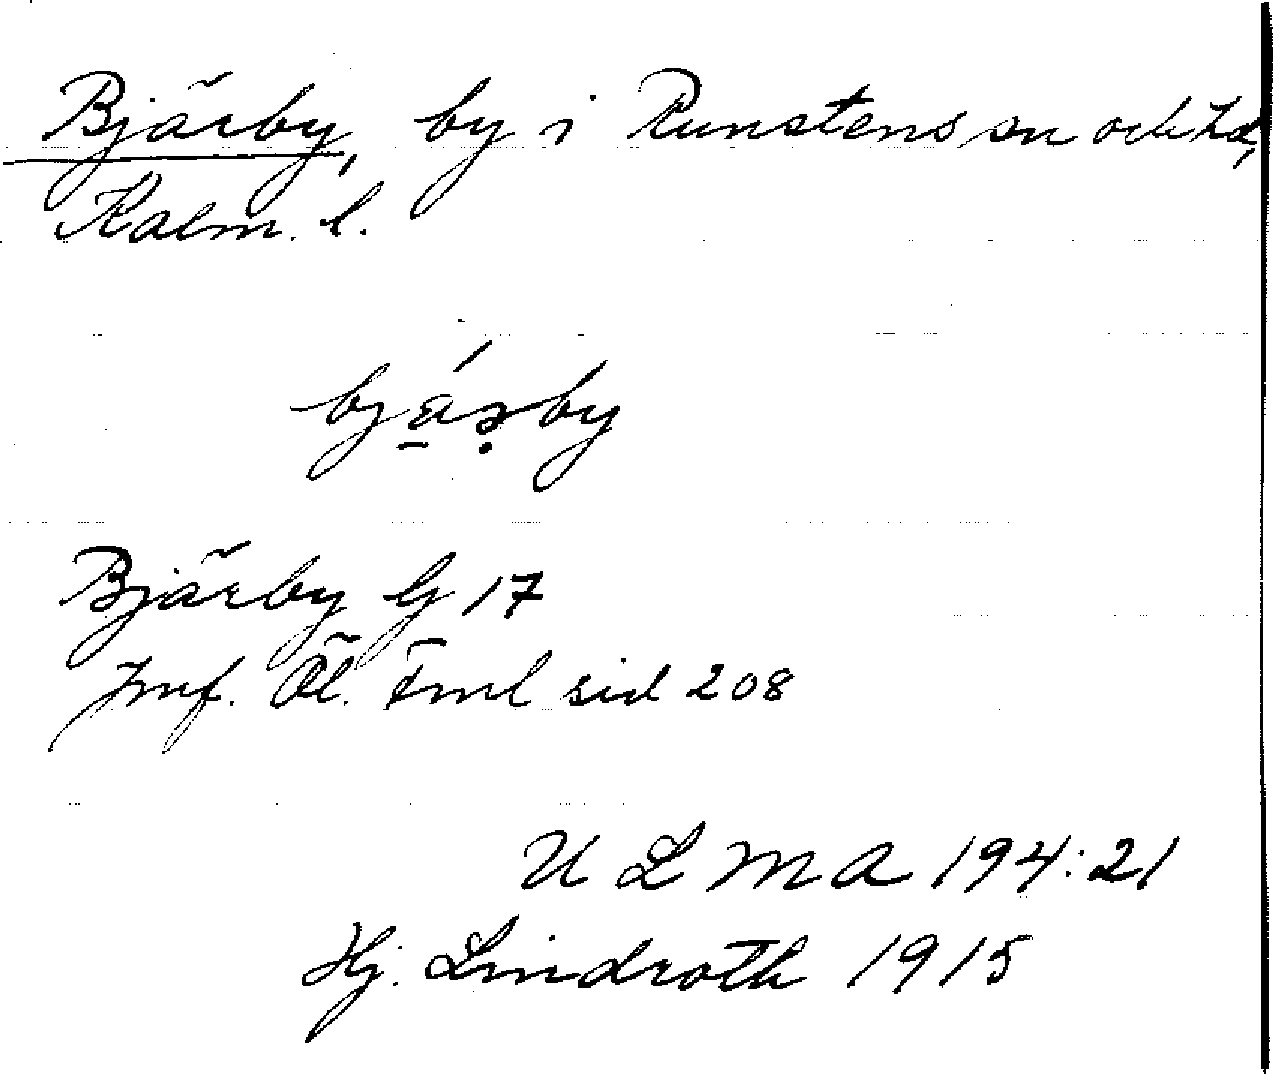 Bjärby, by i Runstens sn och hd,
Kalm. l.
Bjärby G 17
Jmf. Öl. Fml sid 208
U L M A 194:21
Hj. Lindroth 1915